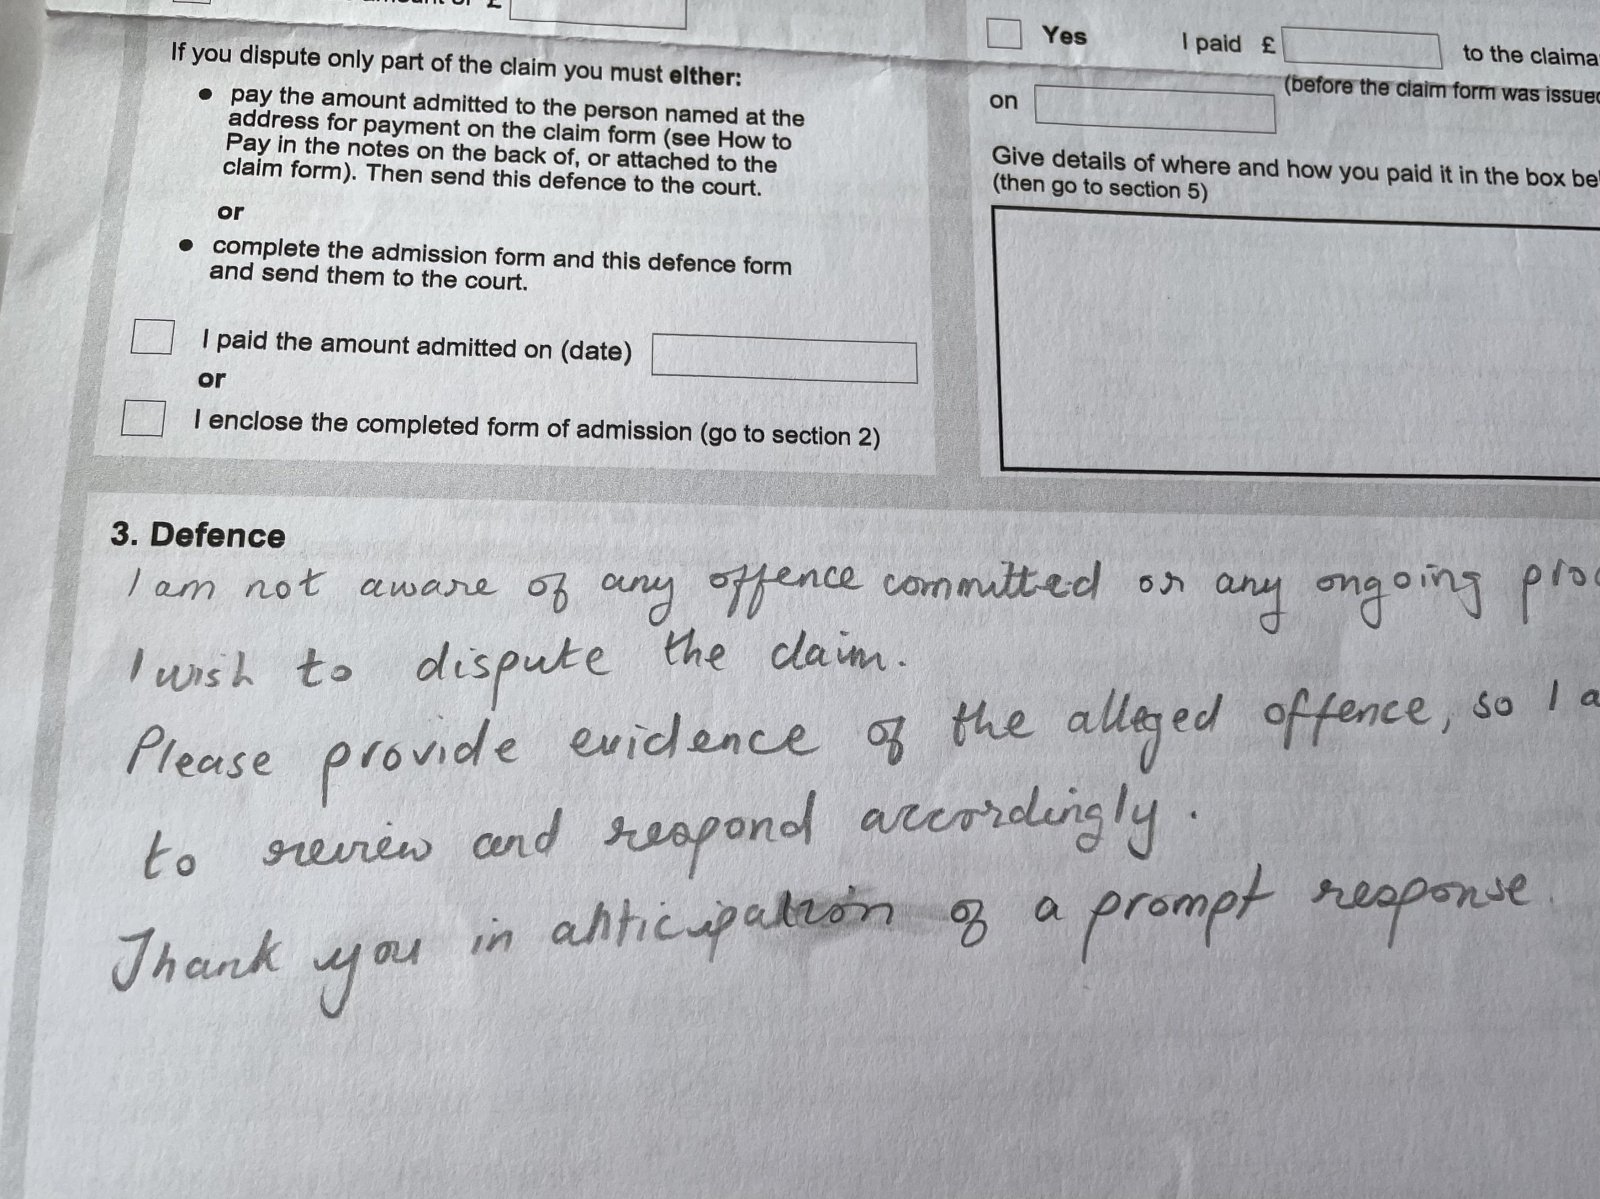 If you dispute only part of the claim you must either:
• pay the amount admitted to the person named at the
address for payment on the claim form (see How to
Pay in the notes on the back of, or attached to the
claim form). Then send this defence to the court.
or
• complete the admission form and this defence form
and send them to the court.
I paid the amount admitted on (date)
or
I enclose the completed form of admission (go to section 2)
Yes I paid £ to the claima
(before the claim form was issued
on
Give details of where and how you paid it in the box be
(then go to section 5)
3. Defence
I am not aware of any offence committed or any ongoing pro
I wish to dispute the claim.
Please provide evidence of the alleged offence, so I a
to review and respond accordingly.
Thank you in anticipation of a prompt response.